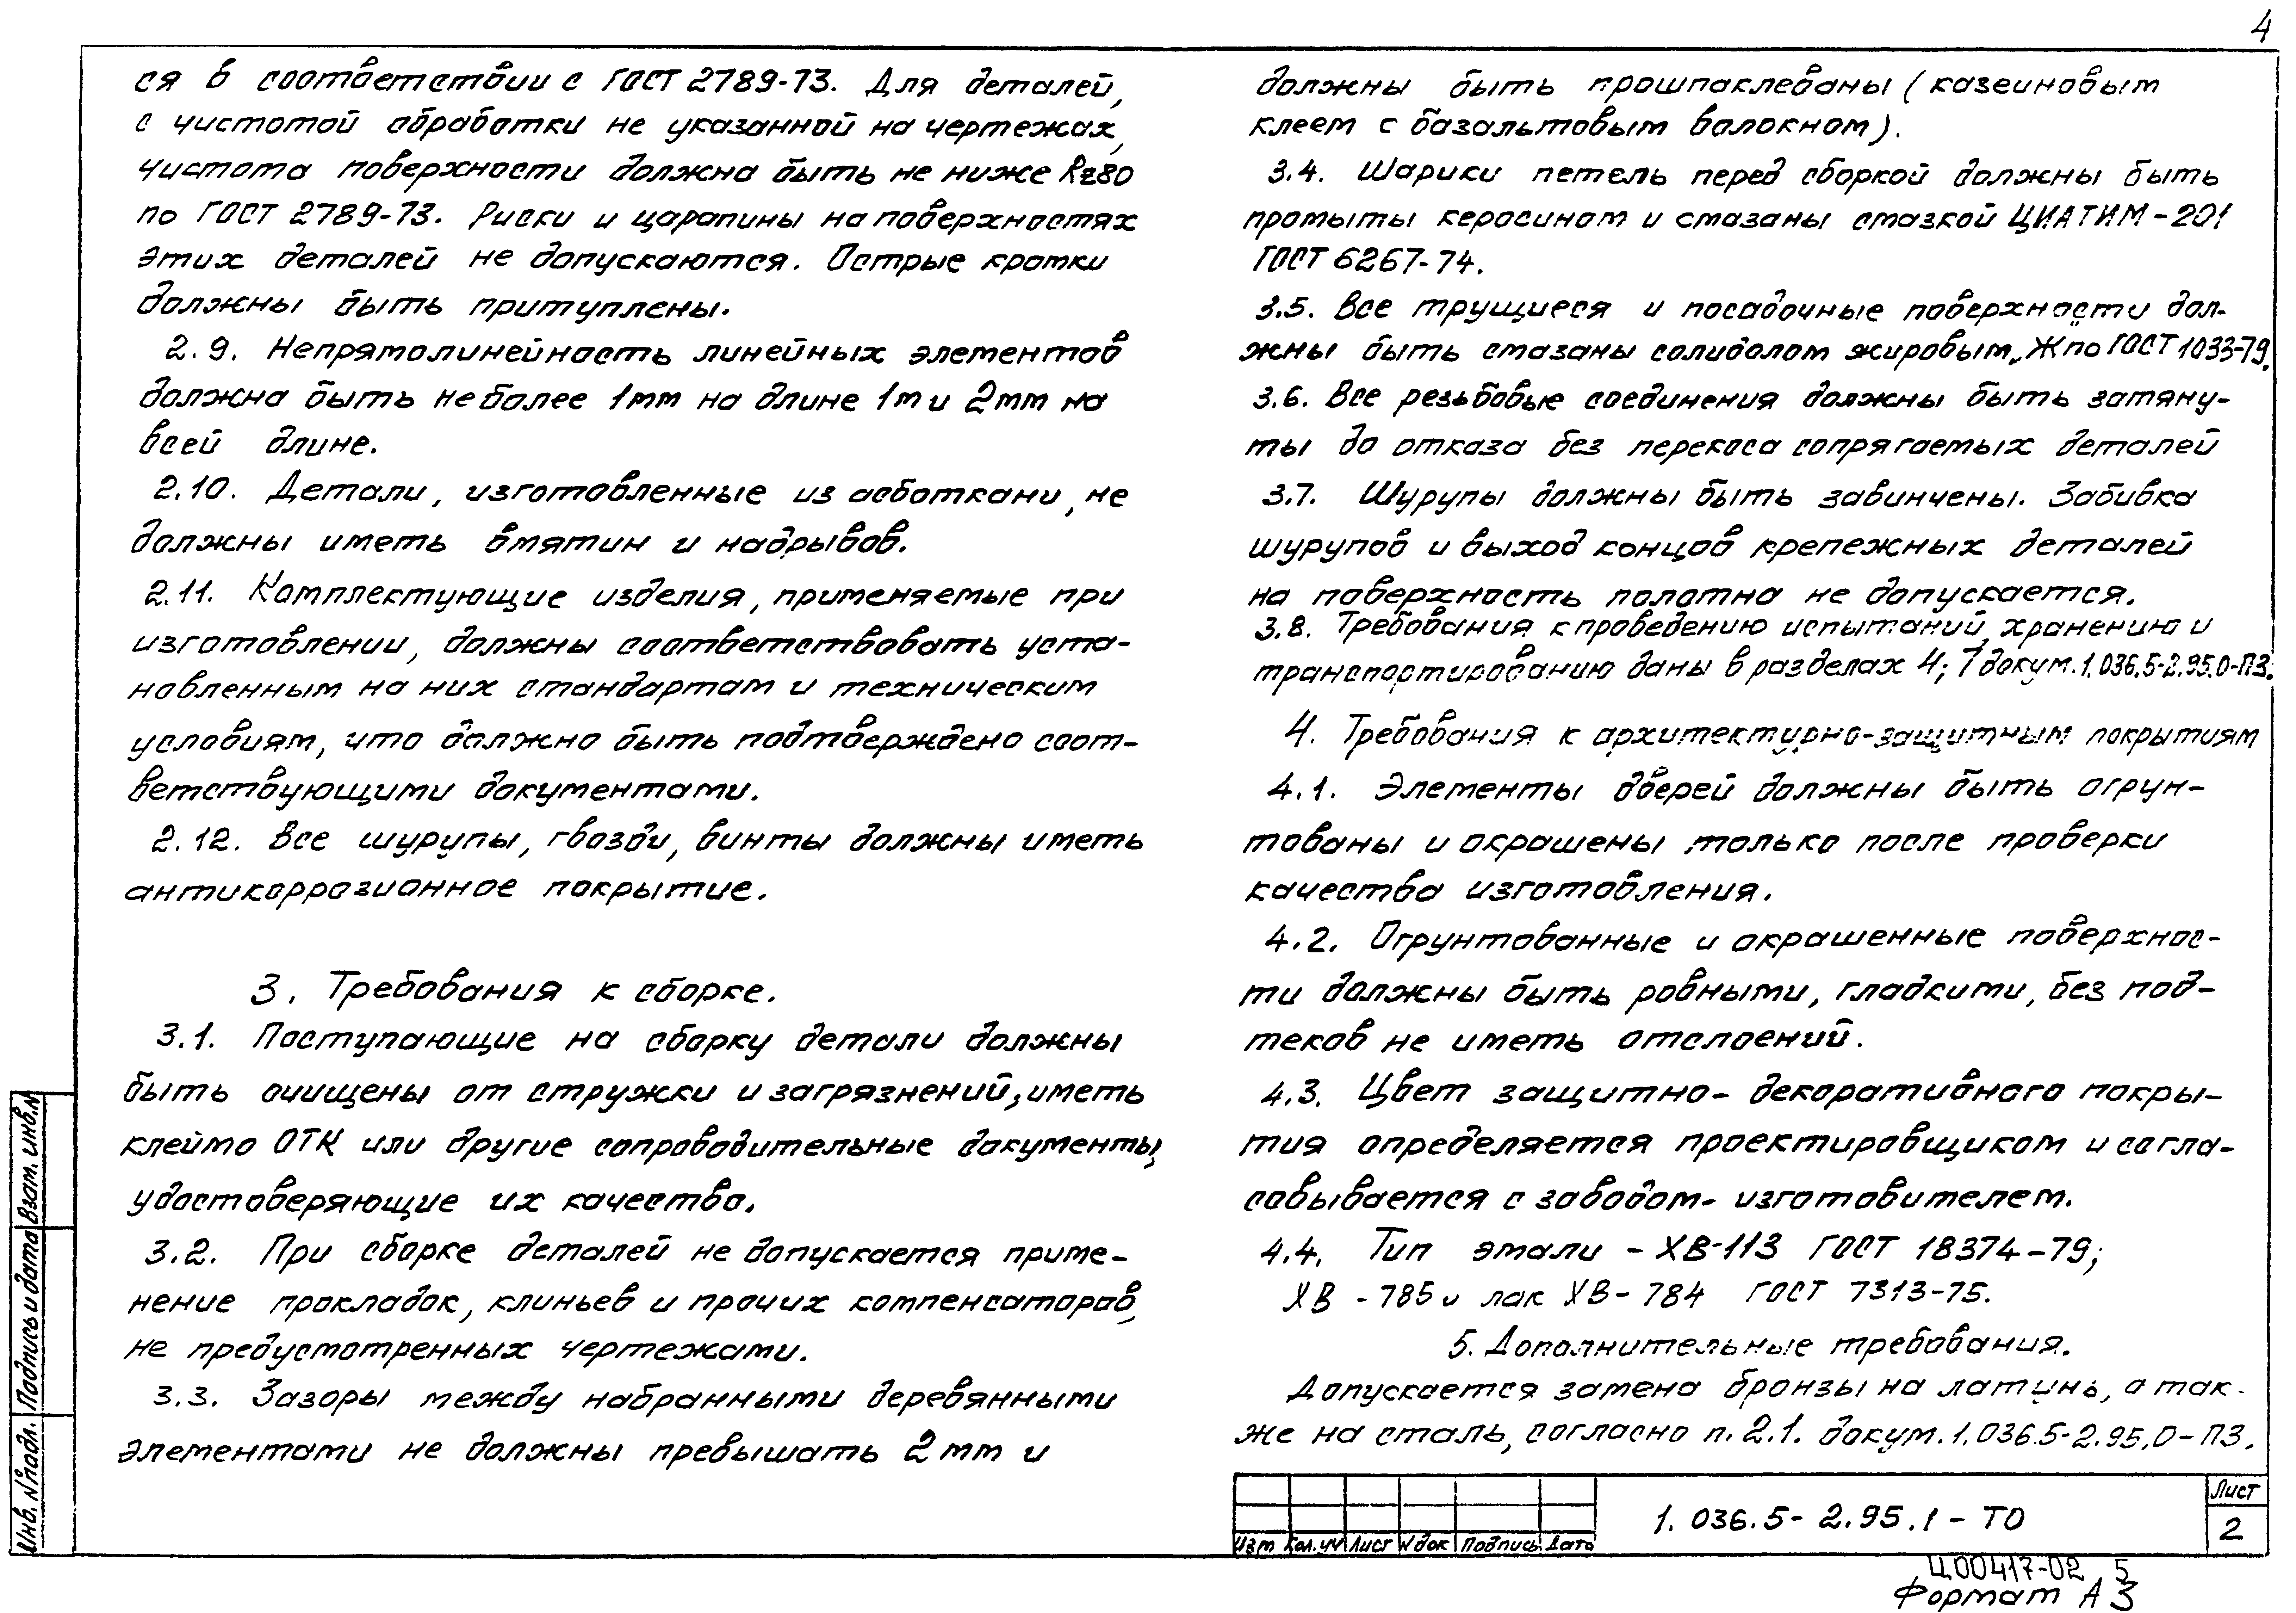 4
ся в соответствии с ГОСТ 2789-73. Для деталей,
с чистотой обработки не указанной на чертежах,
чистота поверхности должна быть не ниже Rz80
по ГОСТ 2789-73. Риски и царапины на поверхностях
этих деталей не допускаются. Острые кромки
должны быть притуплены.
2.9. Непрямолинейность линейных элементов
должна быть не более 1мм на длине 1м и 2мм на
всей длине.
2.10. Детали, изготовленные из асботкани, не
должны иметь вмятин и надрывов.
2.11. Комплектующие изделия, применяемые при
изготовлении, должны соответствовать уста-
новленным на них стандартам и техническим
условиям, что должно быть подтверждено соот-
ветствующими документами.
2.12. Все шурупы, гвозди, винты должны иметь
антикоррозионное покрытие.
3. Требования к сборке.
3.1. Поступающие на сборку детали должны
быть очищены от стружки и загрязнений, иметь
клеймо ОТК или другие сопроводительные документы,
удостоверяющие их качество.
3.2. При сборке деталей не допускается приме-
нение прокладок, клиньев и прочих компенсаторов,
не предусмотренных чертежами.
3.3. Зазоры между набранными деревянными
элементами не должны превышать 2мм и
должны быть прошпаклеваны (казеиновым
клеем с базальтовым волокном).
3.4. Шарики петель перед сборкой должны быть
промыты керосином и смазаны смазкой ЦИАТИМ-201
ГОСТ 6267-74.
3.5. Все трущиеся и посадочные поверхности дол-
жны быть смазаны солидолом жировым „Ж" по ГОСТ 1033-79.
3.6. Все резьбовые соединения должны быть затяну-
ты до отказа без перекоса сопрягаемых деталей
3.7. Шурупы должны быть завинчены. Забивка
шурупов и выход концов крепежных деталей
на поверхность полотна не допускается.
3.8. Требования к проведению испытаний, хранению и
транспортированию даны в разделах 4; 7 докум. 1.036.5-2.95.0-ПЗ.
4. Требования к архитектурно-защитным покрытиям
4.1. Элементы дверей должны быть огрун-
тованы и окрашены только после проверки
качества изготовления.
4.2. Огрунтованные и окрашенные поверхнос-
ти должны быть ровными, гладкими, без под-
теков не иметь отслоений.
4.3. Цвет защитно-декоративного покры-
тия определяется проектировщиком и согла-
совывается с заводом-изготовителем.
4.4. Тип эмали - ХВ-113 ГОСТ 18374-79;
ХВ - 785 и лак ХВ-784 ГОСТ 7313-75.
5. Дополнительные требования.
Допускается замена бронзы на латунь, а так-
же на сталь, согласно п. 2.1. докум. 1.036.5-2.95.0-ПЗ.
Инв. № подл. Подпись и дата Взам. инв. №
Изм Кол.уч Лист № док Подпись Дата
1.036.5-2.95.1-ТО
Лист
2
Ц00417-02 5
Формат А3